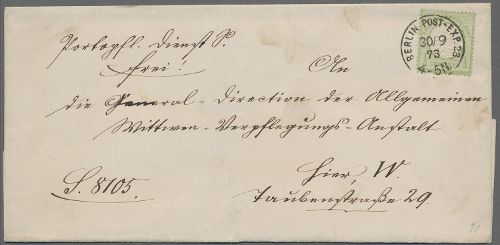 Portopfl. Dienst S.
frei!
BERLIN POST-EXP. 23
30/9
73
4-5N.
An
die General-Direction der Allgemeinen
Wittwen-Verpflegungs-Anstalt
Hier, W.
Taubenstraße 29.
S. 8105.